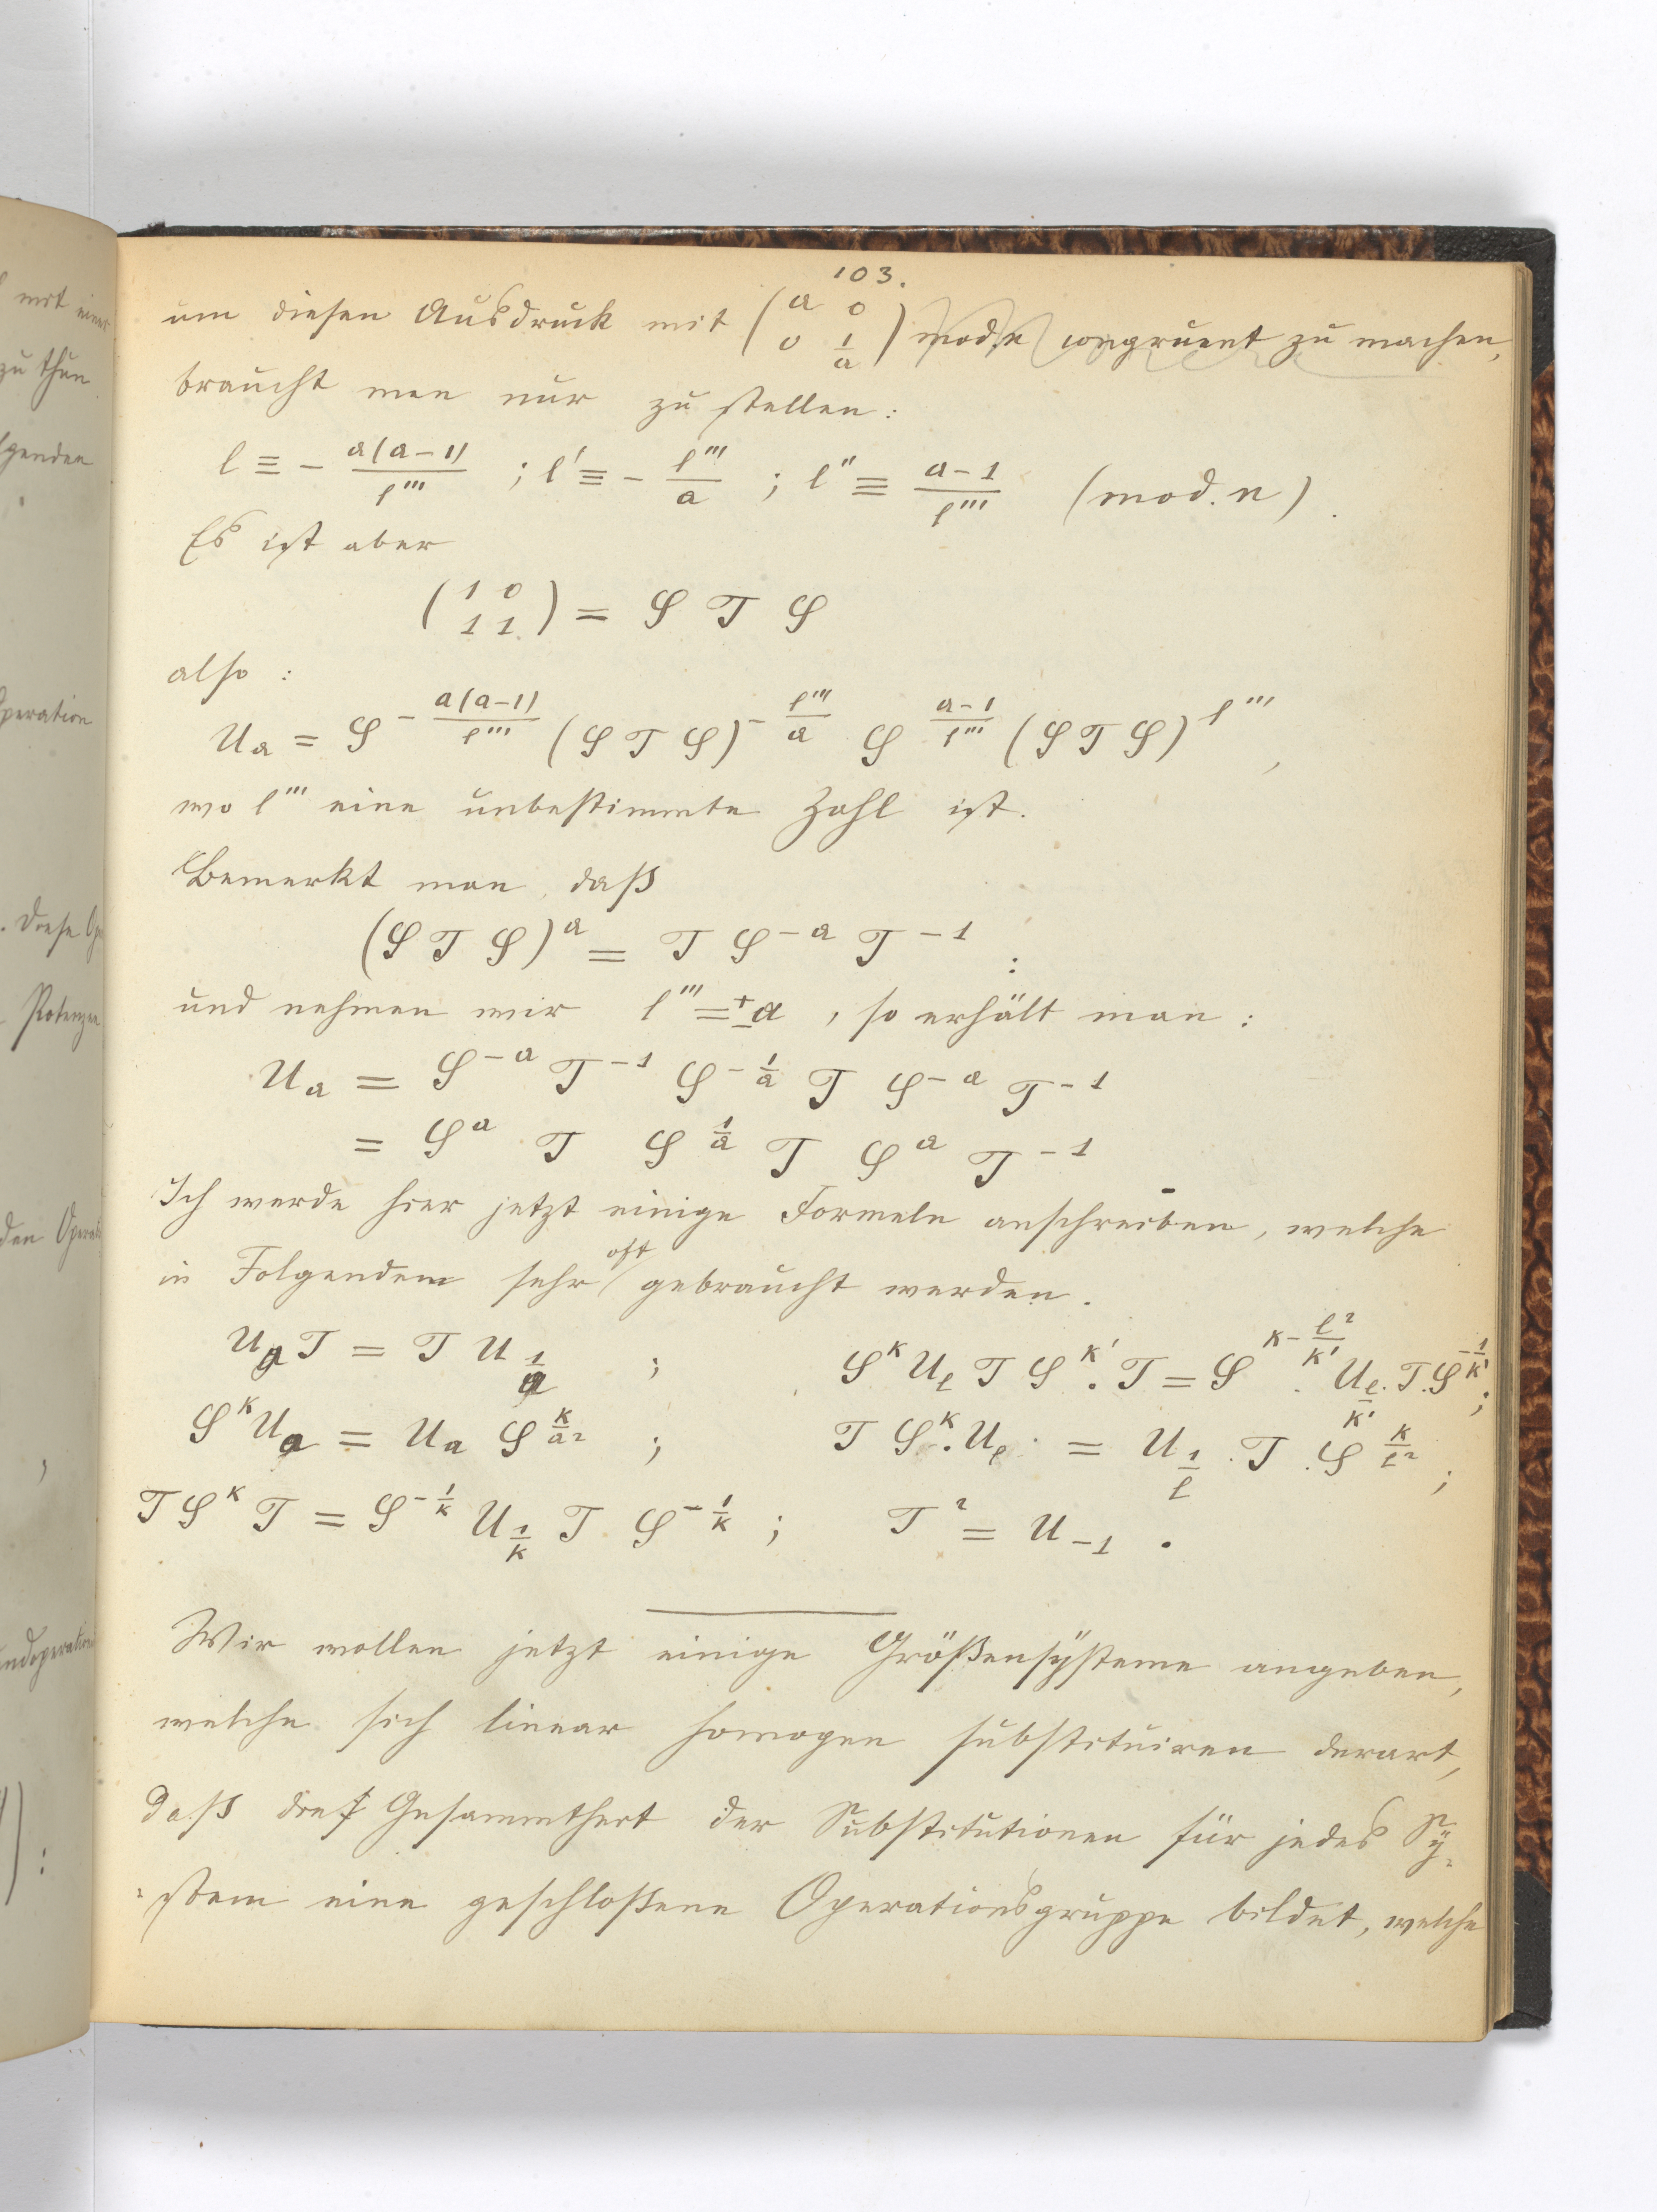 103.
um diesen Ausdruck mit (a 0 / 0 1/a) mod. n congruent zu machen,
braucht man nur zu stellen:
l ≡ - a(a-1)/l''' ; l' ≡ - l'''/a ; l'' ≡ (a-1)/l''' (mod. n).
Es ist aber
(1 0 / 1 1) = S T S
also:
U_a = S^{-a(a-1)/l'''} (S T S)^{-l'''/a} S^{(a-1)/l'''} (S T S)^{l'''},
wo l''' eine unbestimmte Zahl ist.
Bemerkt man, daß
(S T S)^a = T S^{-a} T^{-1} :
und nehmen wir l''' = ±a, so erhält man:
U_a = S^{-a} T^{-1} S^{-1/a} T S^{-a} T^{-1}
= S^a T S^{1/a} T S^a T^{-1}
Ich werde hier jetzt einige Formeln anschreiben, welche
in Folgendem sehr oft gebraucht werden.
U_a T = T U_{1/a} ; S^k U_l T S^{k'} . T = S^{k - l²/k'} . U_{l/k'} . T . S^{-1/k'} ;
S^k U_a = U_a S^{k/a²} ; T S^k . U_l = U_{1/l} . T . S^{k/l²} ;
T S^k T = S^{-1/k} U_{1/k} T S^{-1/k} ; T² = U_{-1} .
Wir wollen jetzt einige Größensÿsteme angeben,
welche sich linear homogen substituiren derart,
daß die Gesammtheit der Substitutionen für jedes Sÿ-
stem eine geschloßene Operationsgruppe bildet, welche
mit einer
zu thun
lgenden
Operation
. Diese
Potenzen
den